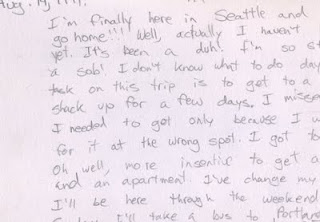 Aug.
I'm finally here in Seattle and
go home!!! Well, actually I haven't
yet. It's been a duh! I'm so st
a sob! I don't know what to do day
back on this trip is to get to a
shack up for a few days. I misse
I needed to get only because I w
for it at the wrong spot. I got to
Oh well, more insentic to get a
and an apartment. I've change my
I'll be here through the weekend
I'll take a bus to Portla